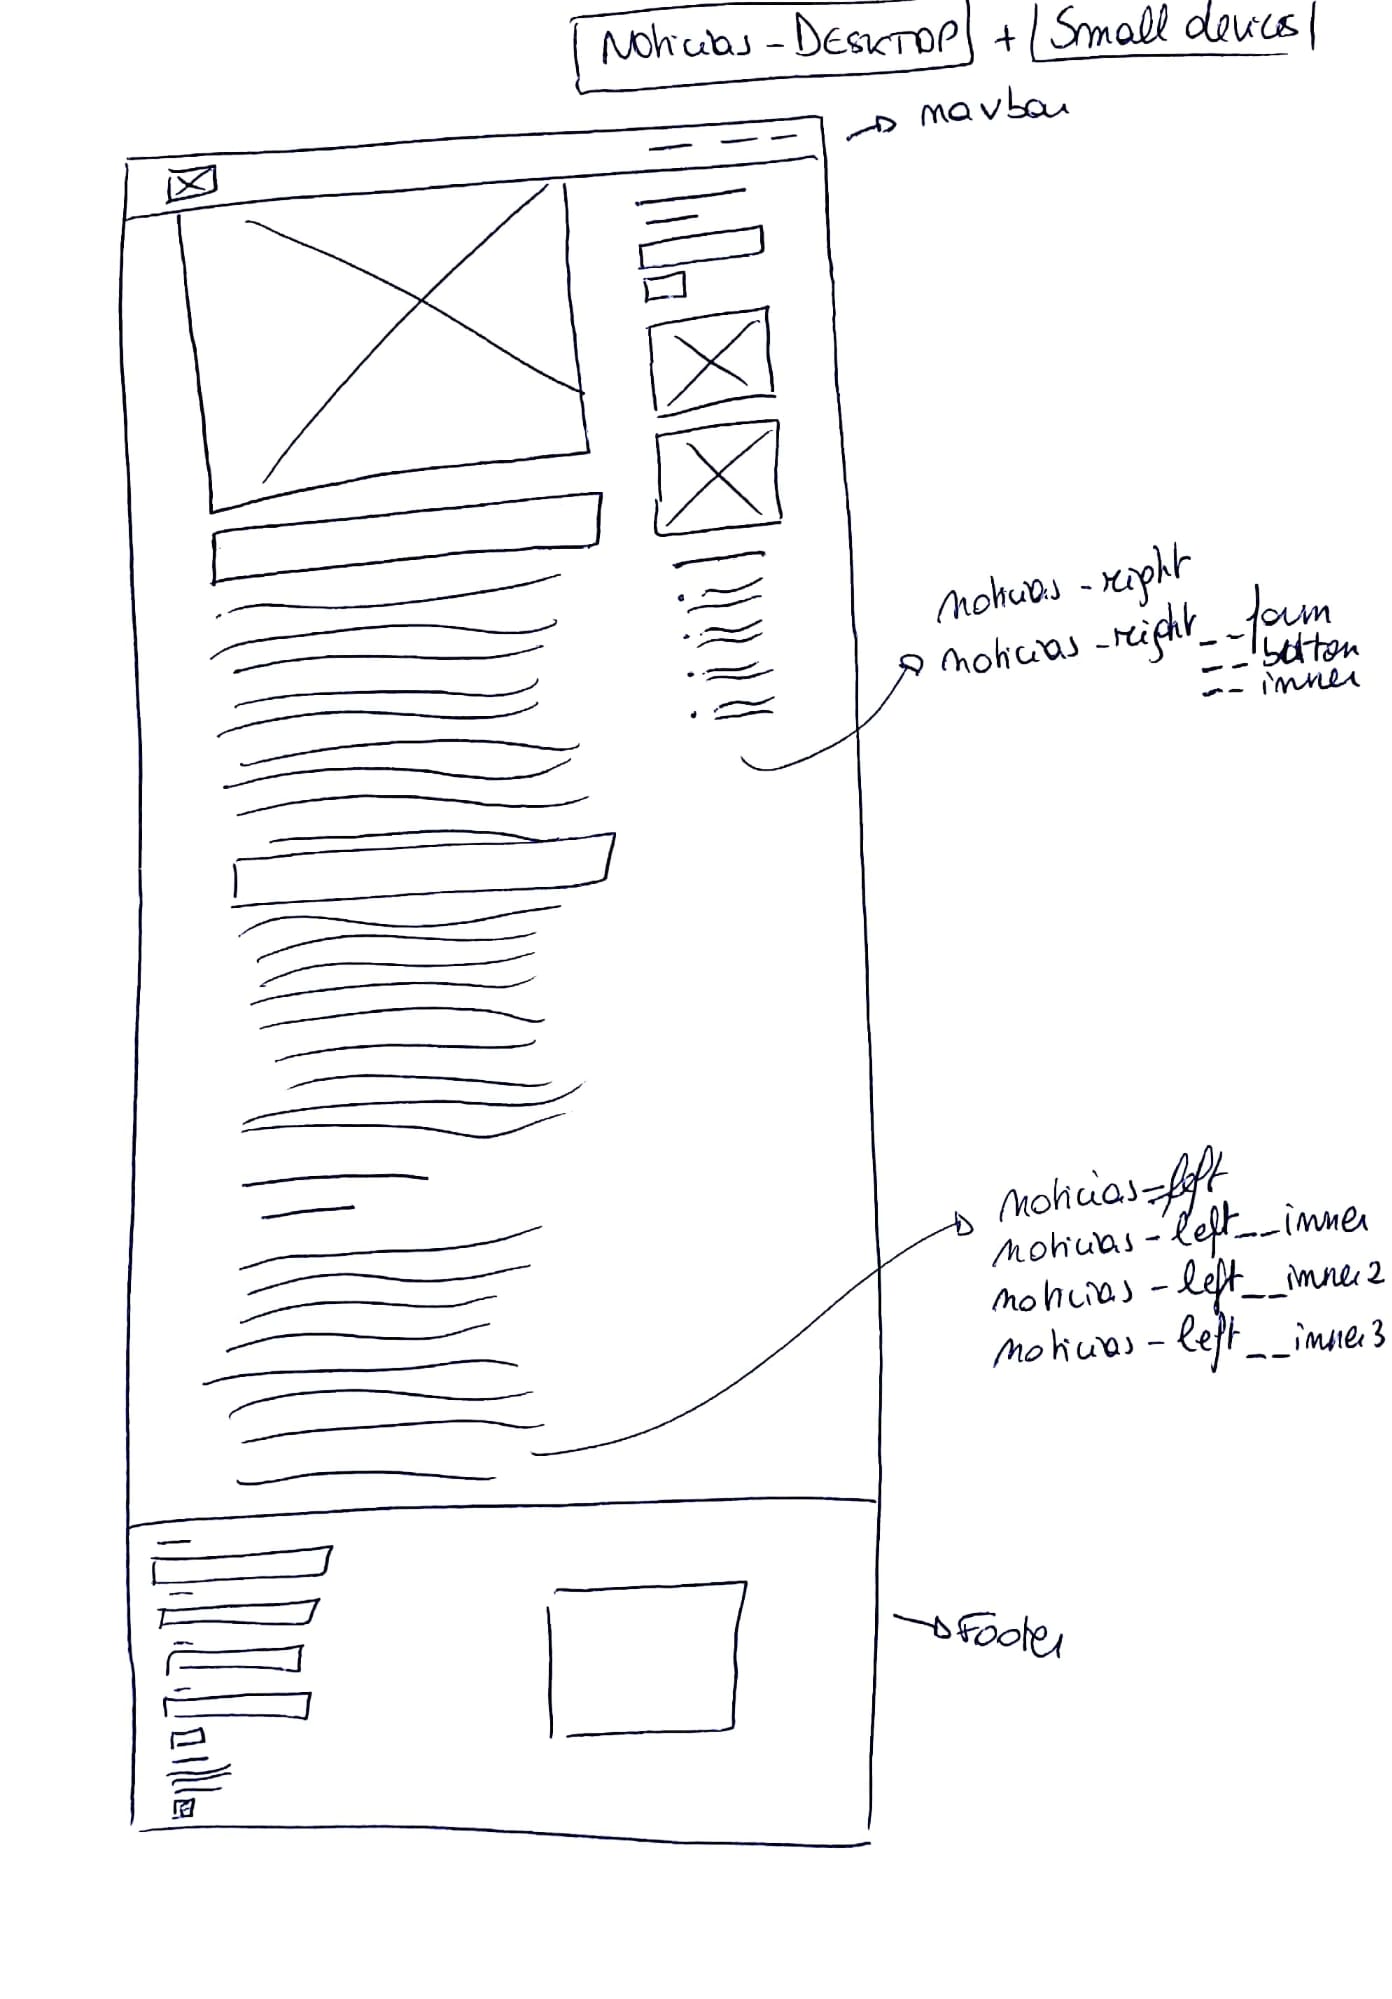 Noticias - DESKTOP + Small devices
navbar
noticias - right
noticias - right__form
__button
__inner
noticias - left
noticias - left__inner
noticias - left__inner2
noticias - left__inner3
Footer